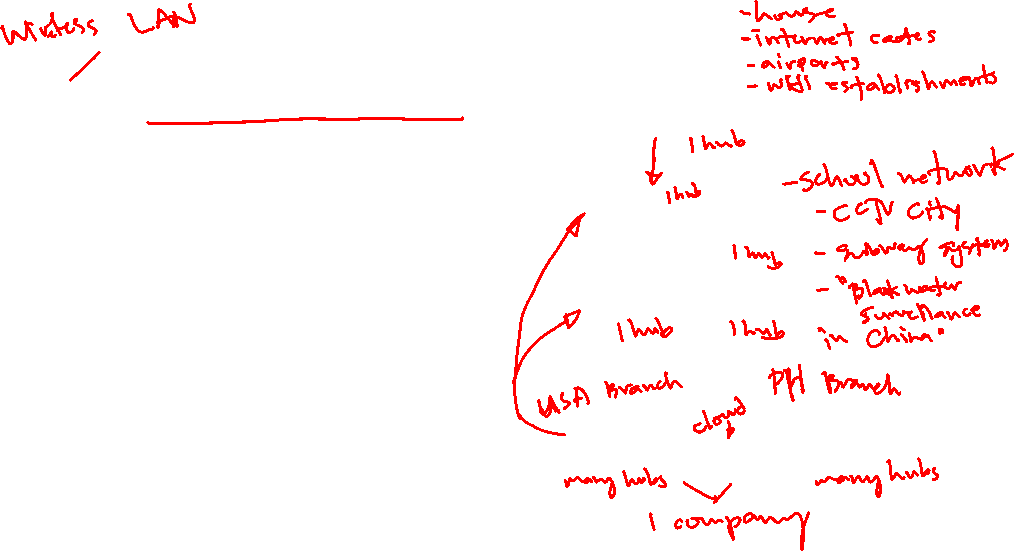 Wireless LAN
- house
- internet cafes
- airports
- WiFi establishments
1 hub
1 hub
- school network
- CCTV City
1 hub
- subway system
- "Blackwater
surveillance
in China"
1 hub
1 hub
USA Branch
PH Branch
cloud
many hubs
many hubs
1 company